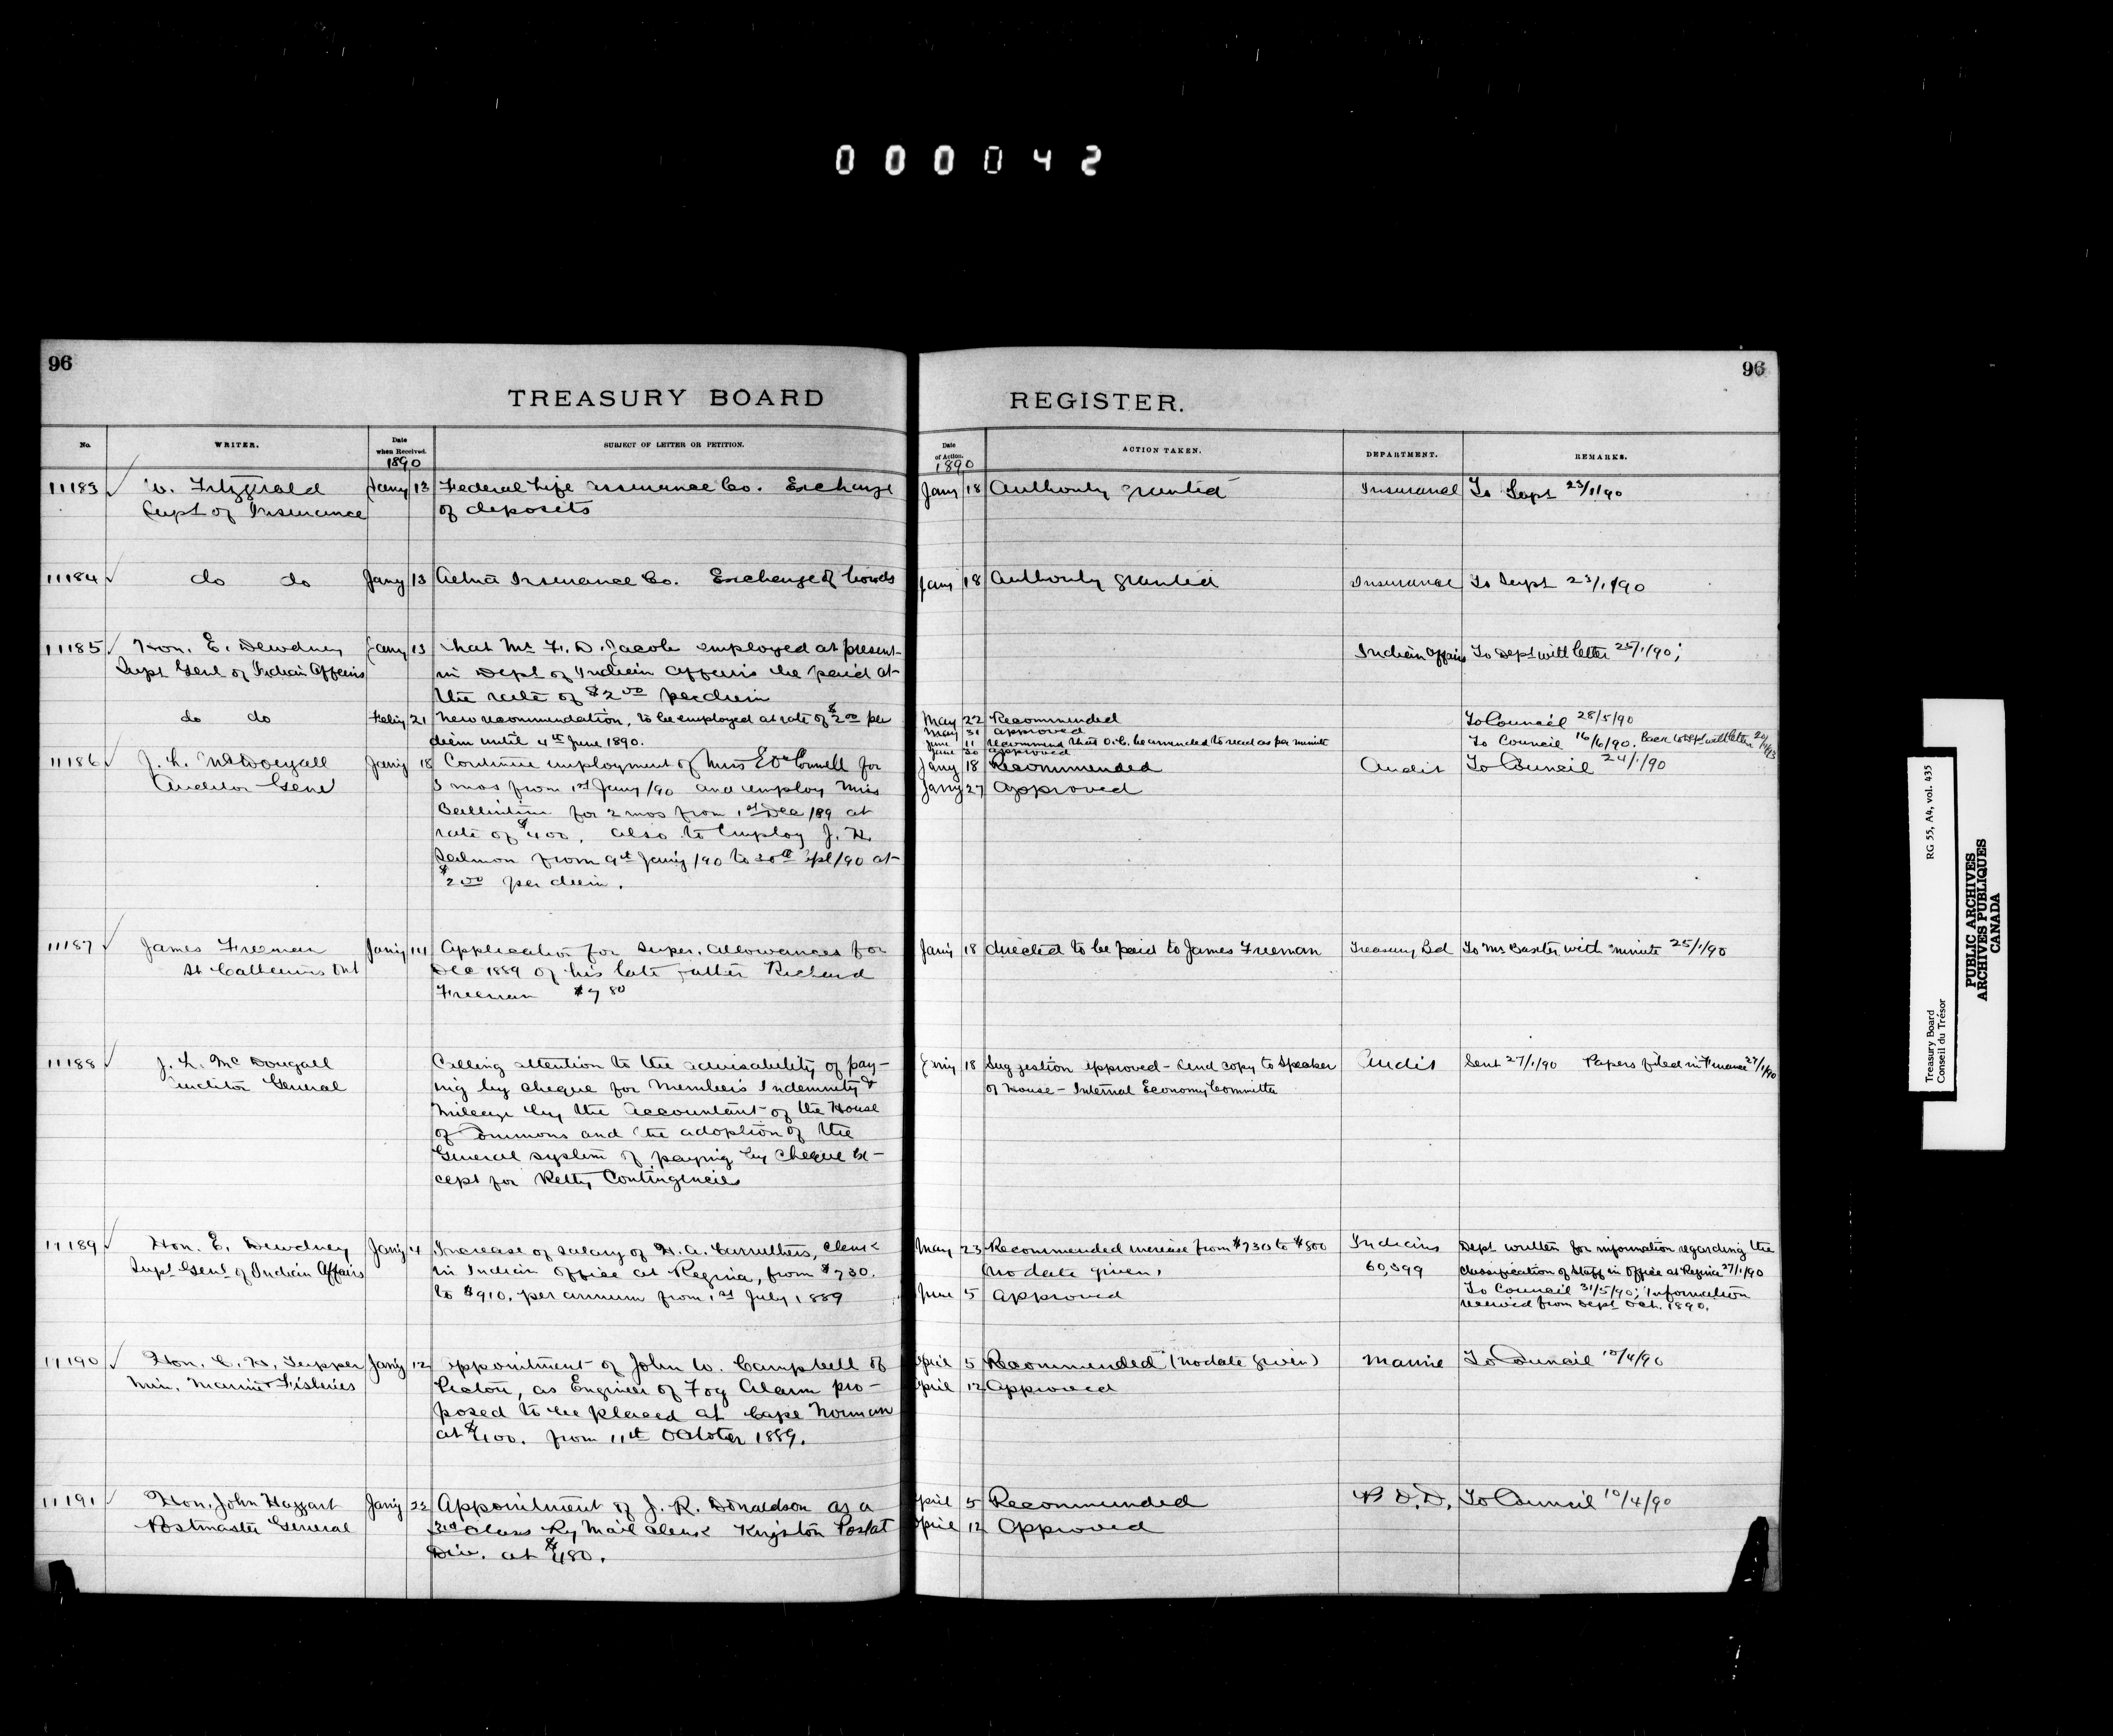 000042
96
96
TREASURY BOARD
REGISTER.
No.
WRITER.
Date when Received.
1890
SUBJECT OF LETTER OR PETITION.
Date of Action.
1890
ACTION TAKEN.
DEPARTMENT.
REMARKS.
11183 W. Fitzgerald Jany 13 Federal Life Assurance Co. Exchange Jany 18 Authority granted Insurance To Supt 23/1/90
Supt of Insurance of deposits
11184 do do Jany 13 Aetna Insurance Co. Exchange of bonds Jany 18 Authority granted Insurance To Supt 23/1/90
11185 Hon. E. Dewdney Jany 13 That Mr. F. D. Jacob employed at present Indian Affairs To Dept with letter 25/1/90;
Supt Genl of Indian Affairs in Dept of Indian Affairs be paid at
the rate of $2.00 per diem
do do Feby 21 New recommendation, to be employed at rate of $2.00 per May 22 Recommended To Council 28/5/90
diem until 4th June 1890. May 31 Approved
June 11 Recommend that O.C. be amended to read as per minute To Council 16/6/90. Back to Dept with letter
June 30 approved
11186 J. L. McDougall Jany 18 Continue employment of Miss E. O'Connell for Jany 18 Recommended Audit To Council 24/1/90
Auditor Genl 3 mos from 1st Jany/90 and employ Miss Jany 27 Approved
Ballantine for 2 mos from 1st Dec/89 at
rate of $400. also to employ J. H.
from 9th Jany/90 to 30th Spt/90 at
$2.00 per diem.
11187 James Freeman Jany 14 Application for Super. Allowances for Jany 18 directed to be paid to James Freeman Treasury Bd To Mr Baxter with minute 25/1/90
St Catherines Ont Dec 1889 of his late father Richard
Freeman $7.80
11188 J. L. McDougall Calling attention to the advisability of pay- Jany 18 Suggestion approved - Send copy to Speaker Audit Sent 27/1/90 Papers filed in Finance 27/1/90
Auditor General ing by cheque for Members Indemnity & of House - Internal Economy Committee
Mileage by the Accountant of the House
of Commons and the adoption of the
General system of paying by Cheque ex-
cept for Petty Contingencies
11189 Hon. E. Dewdney Jany 4 Increase of salary of H. A. Carruthers, Clerk May 23 Recommended increase from $730 to $800 Indians Dept written for information regarding the
Supt Genl of Indian Affairs in Indian Office at Regina, from $730. (no date given) 60,599 classification of staff in Office at Regina 27/1/90
to $910. per annum from 1st July 1889 June 5 Approved To Council 31/5/90; Information
received from Dept Oct. 1890.
11190 Hon. C. H. Tupper Jany 12 Appointment of John W. Campbell of April 5 Recommended (no date given) Marine To Council 10/4/90
Min. Marine & Fisheries Pictou, as Engineer of Fog Alarm pro- April 12 Approved
posed to be placed at Cape Norman
at $400. from 11th October 1889.
11191 Hon. John Haggart Jany 22 Appointment of J. R. Donaldson as a April 5 Recommended P.O.D. To Council 10/4/90
Postmaster General 3rd Class Ry Mail Clerk Kingston Postal April 12 Approved
Div. at $480.
RG 55, A4, vol. 435
Treasury Board
Conseil du Trésor
PUBLIC ARCHIVES
ARCHIVES PUBLIQUES
CANADA